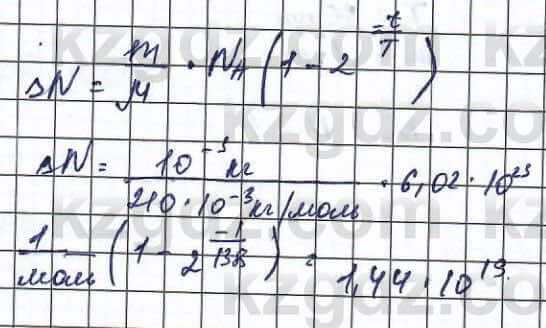 ΔN = m/μ · N_A (1 - 2^(-t/T))
ΔN = 10^-3 кг / 210 · 10^-3 кг/моль · 6,02 · 10^23
1/моль (1 - 2^(-1/138)) = 1,44 · 10^19.